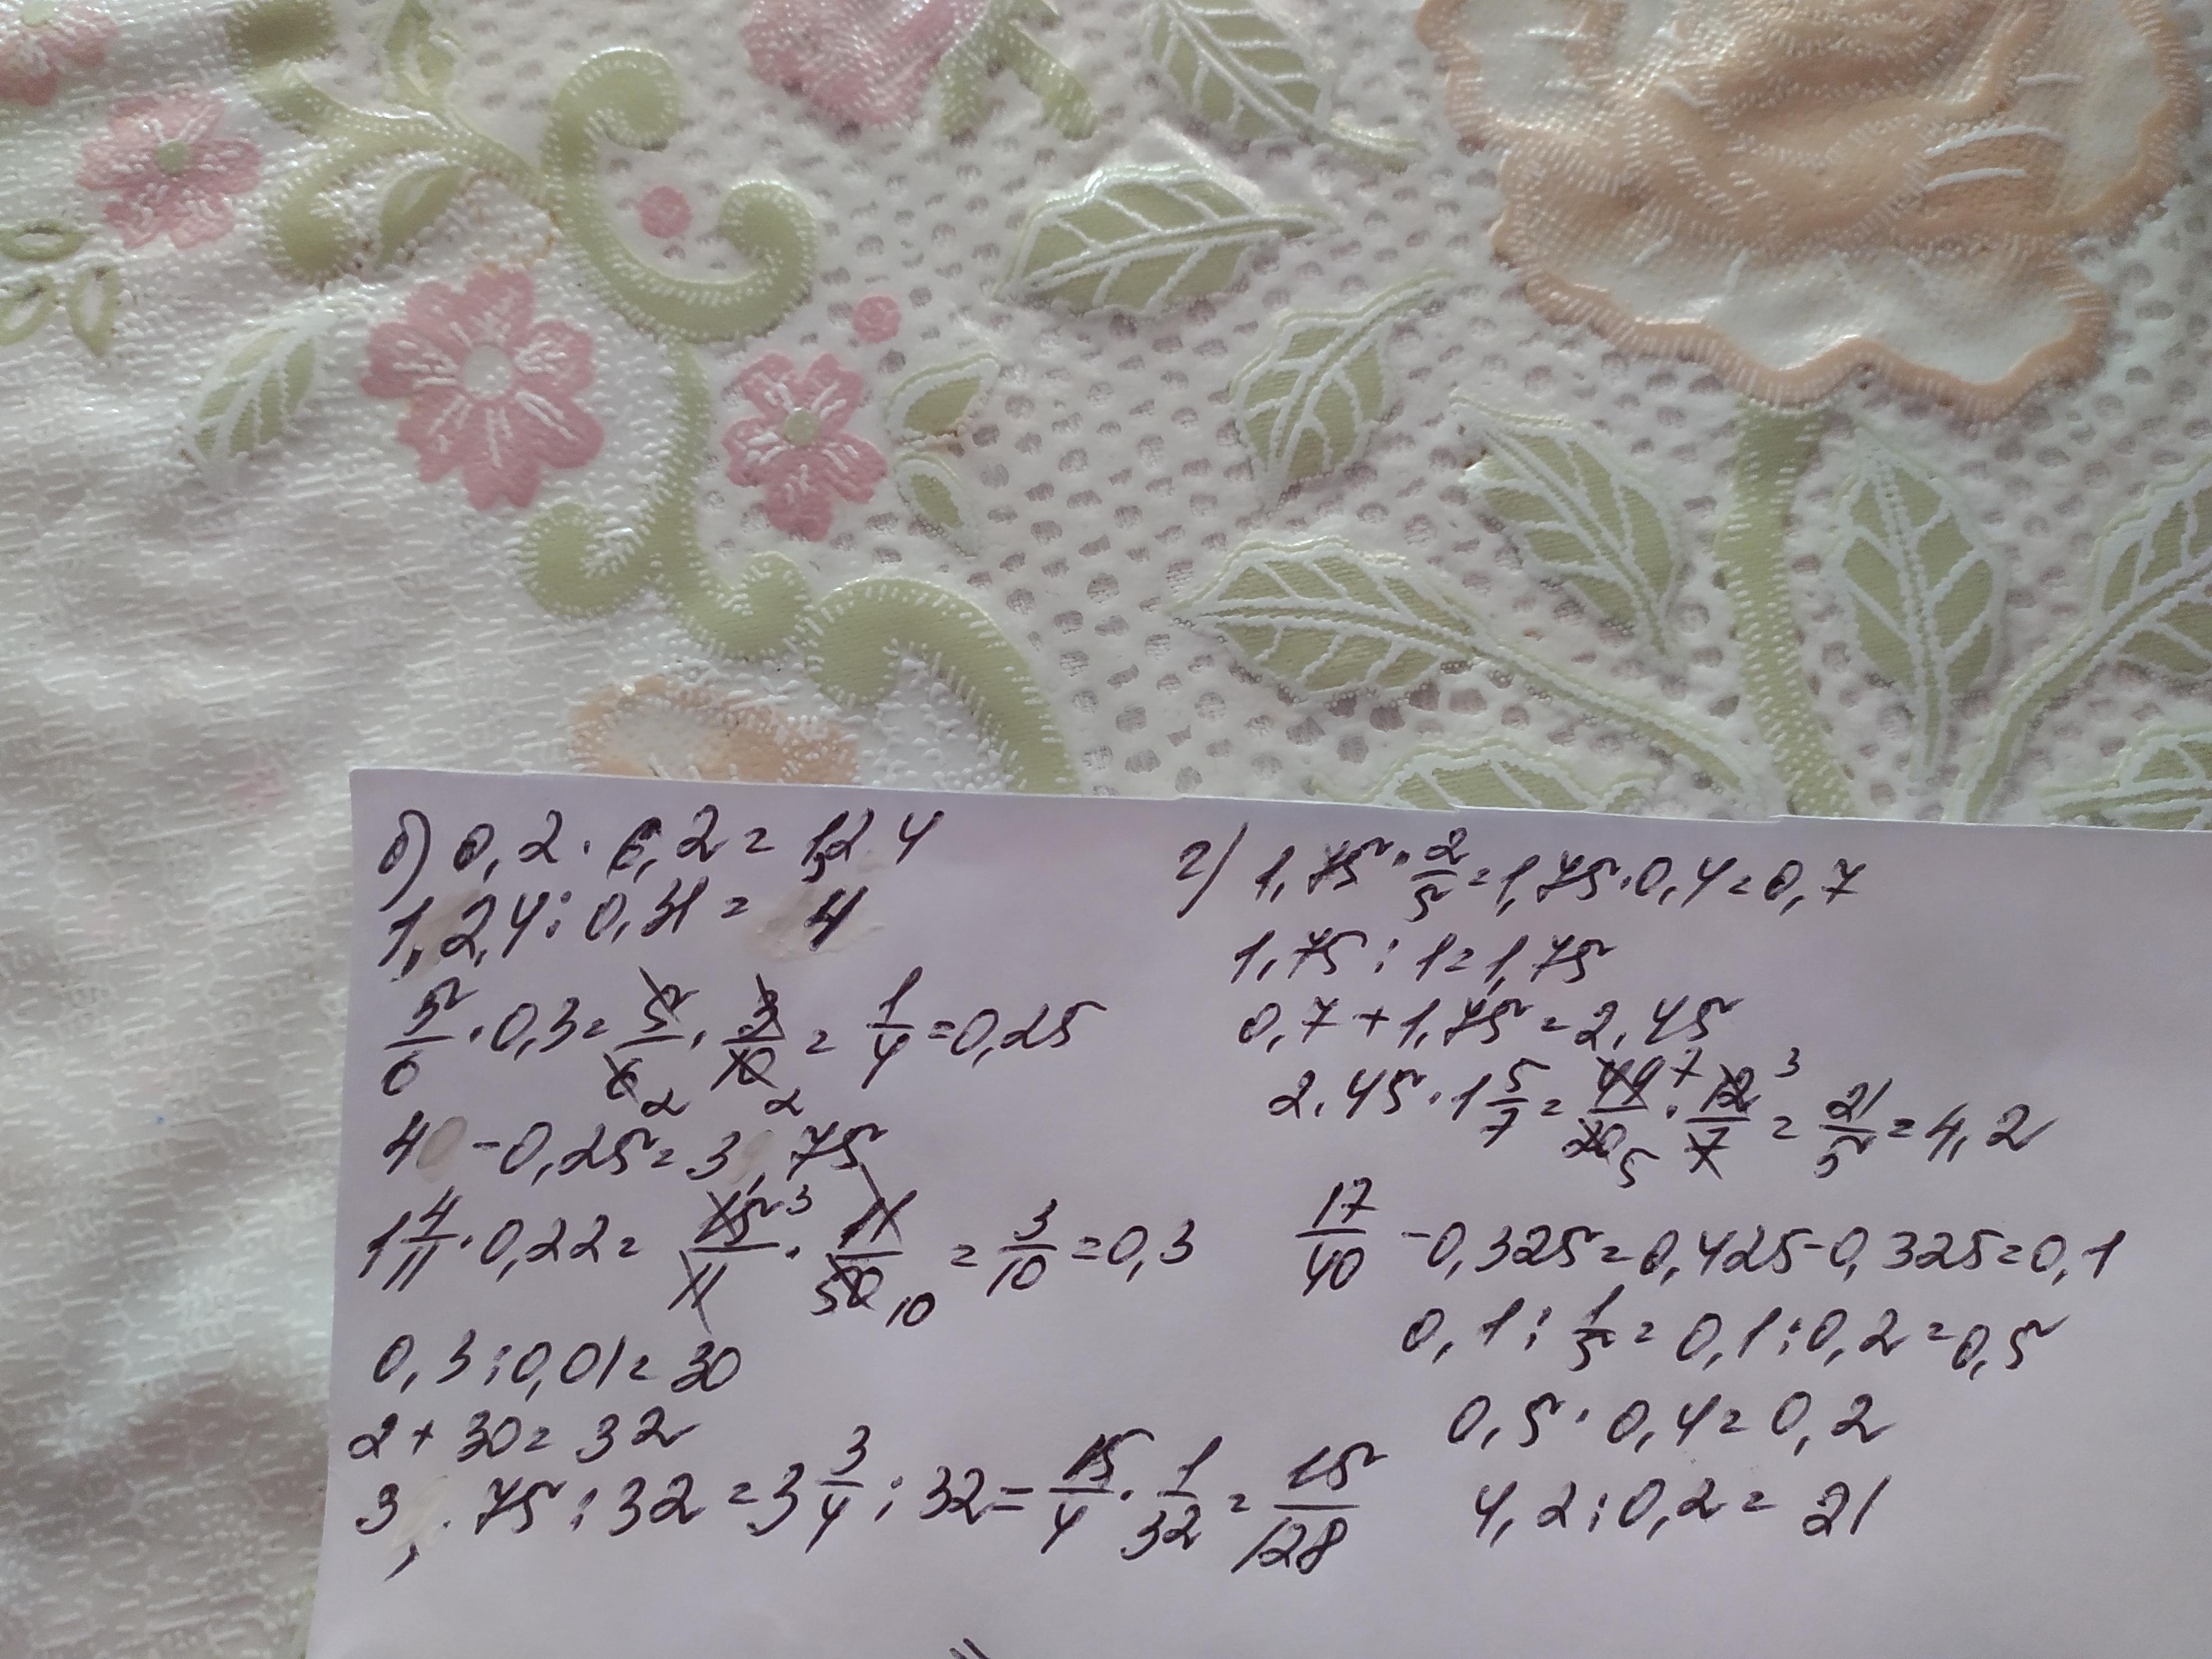 б) 0,2 · 6,2 = 1,24
1,24 : 0,31 = 4
5/6 · 0,3 = 5/6 2 · 3/10 2 = 1/4 = 0,25
4 - 0,25 = 3,75
1 4/11 · 0,22 = 15 3/11 · 11/50 10 = 3/10 = 0,3
0,3 : 0,01 = 30
2 + 30 = 32
3,75 : 32 = 3 3/4 : 32 = 15/4 · 1/32 = 15/128
г) 1,75 · 2/5 = 1,75 · 0,4 = 0,7
1,75 : 1 = 1,75
0,7 + 1,75 = 2,45
2,45 · 1 5/7 = 49 7/20 5 · 12 3/7 = 21/5 = 4,2
17/40 - 0,325 = 0,425 - 0,325 = 0,1
0,1 : 1/5 = 0,1 : 0,2 = 0,5
0,5 · 0,4 = 0,2
4,2 : 0,2 = 21